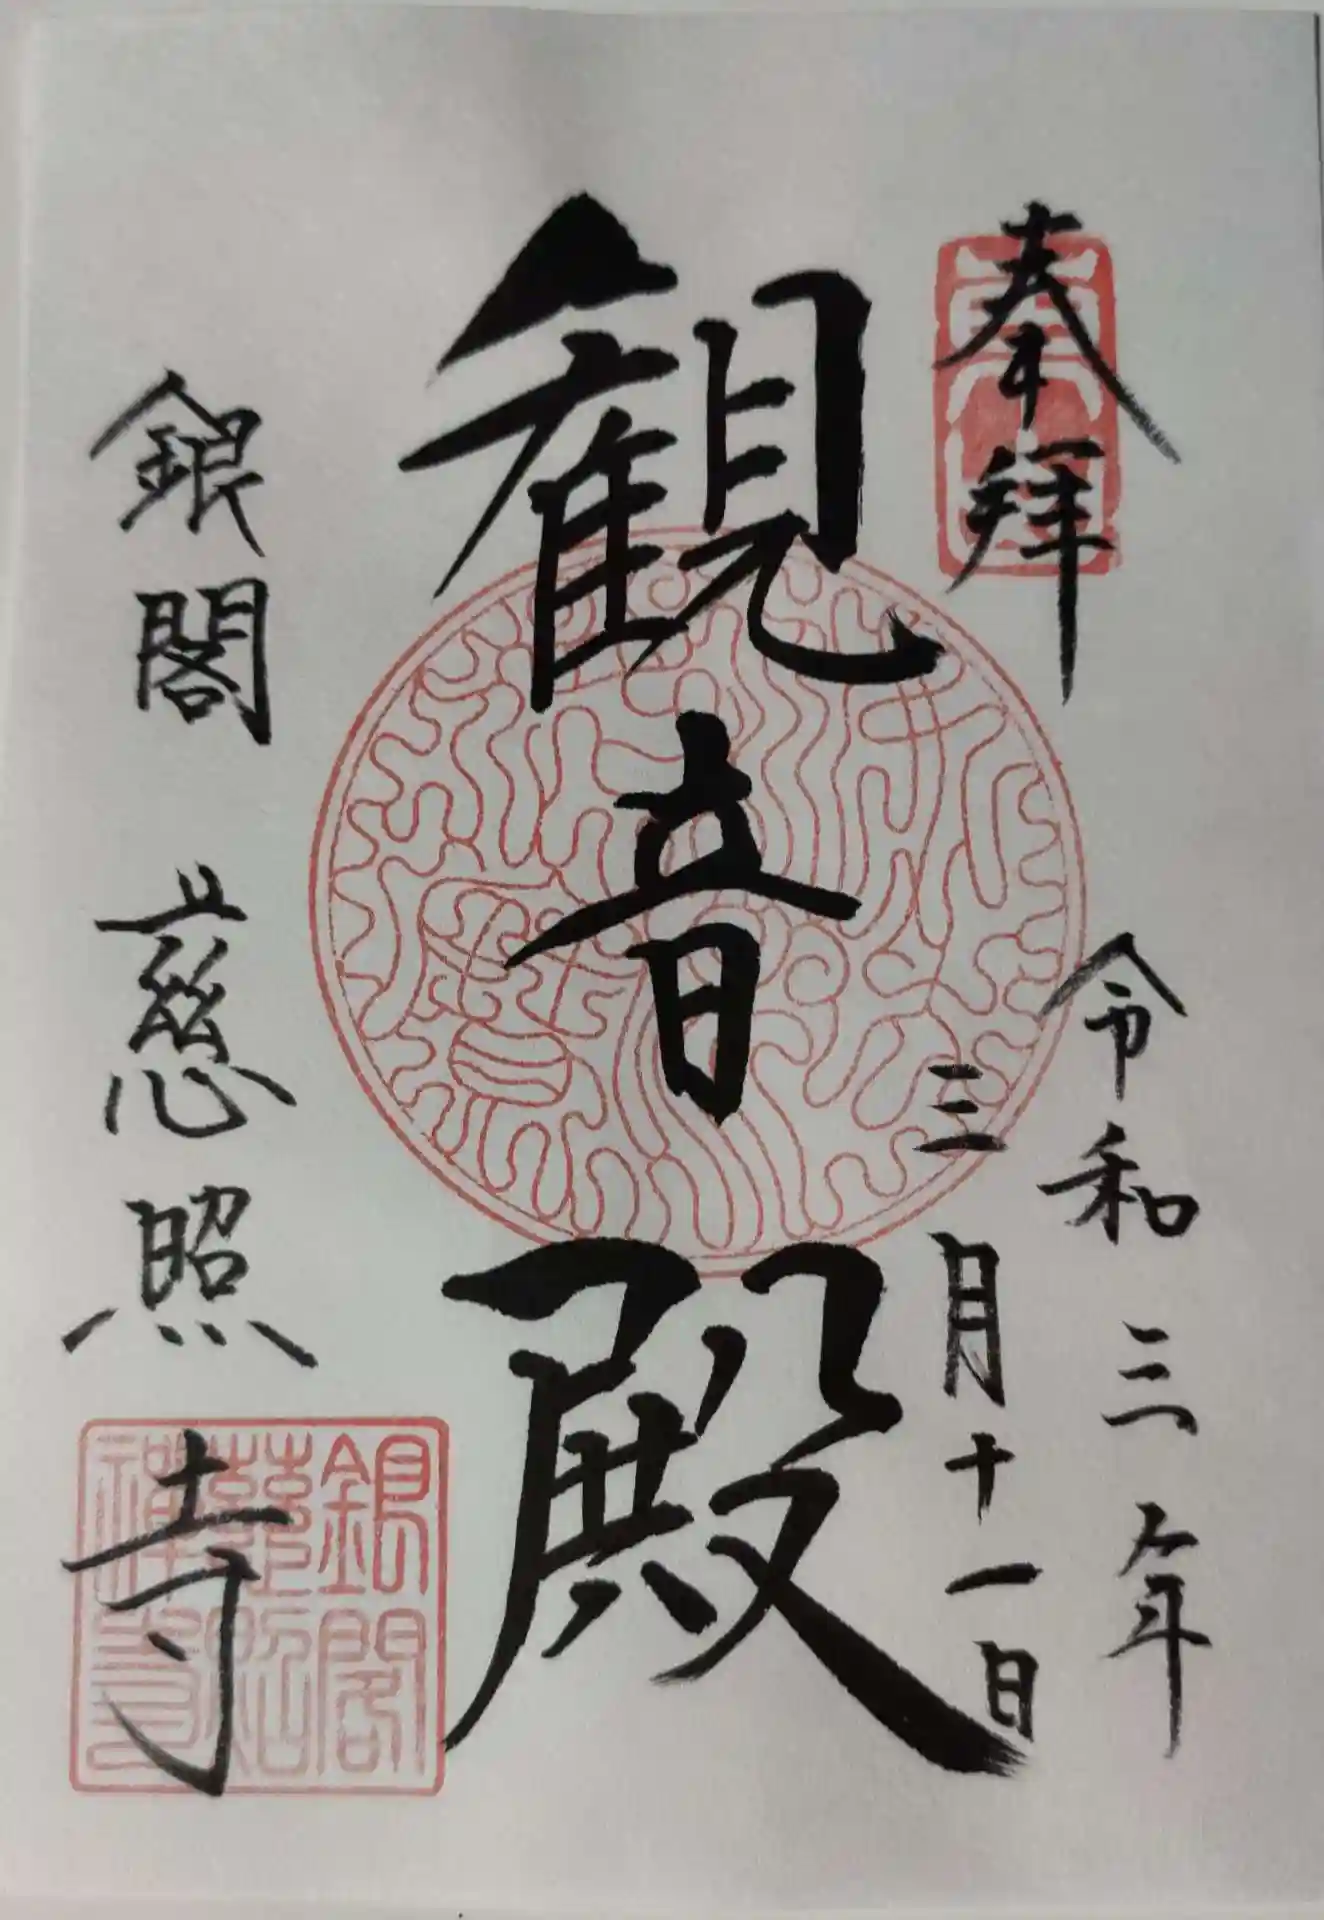 奉拝
令和三年
三月十一日
観音殿
銀閣慈照寺
銀閣
慈照
禅寺